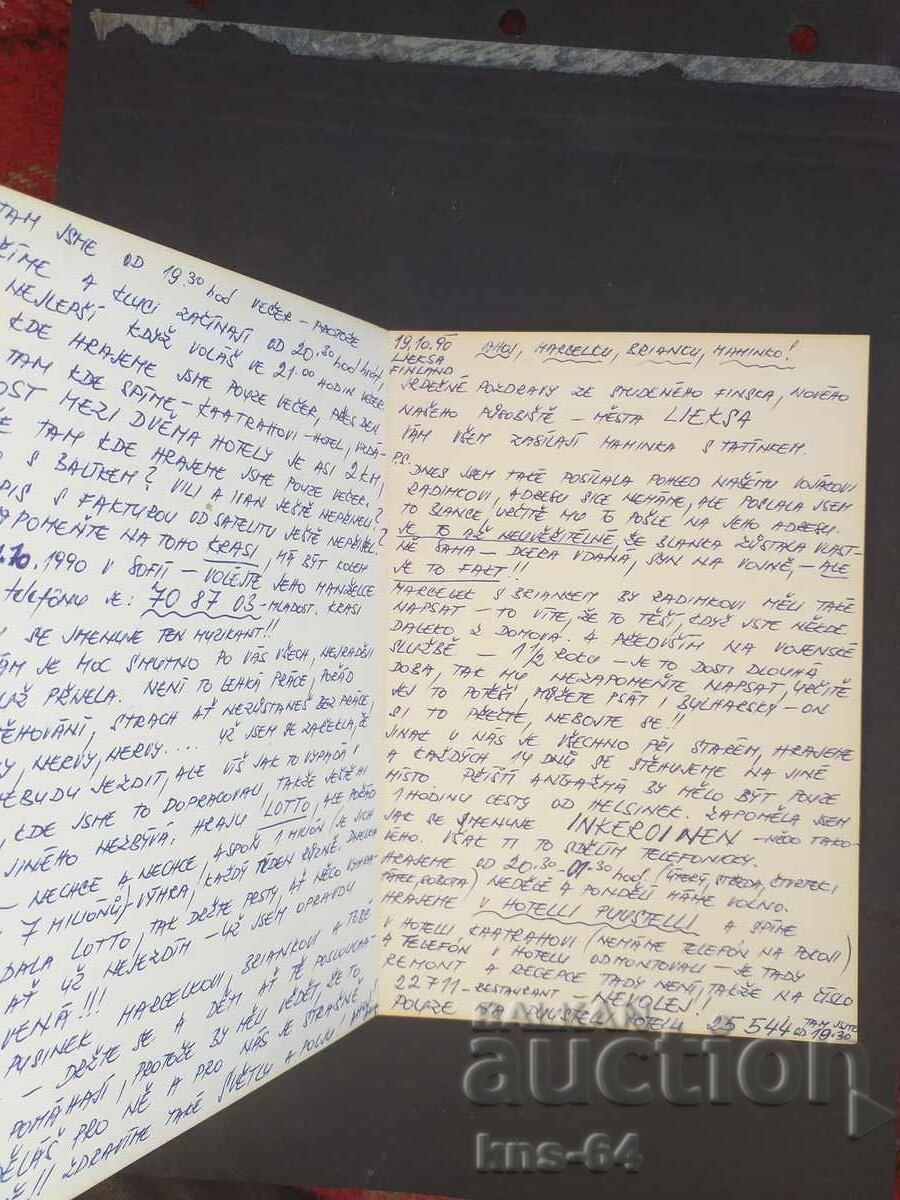 19.10.90 AHOJ, MARCELKU, BRIANKU, MAMINKO!
LIEKSA
FINLAND
SRDEČNÉ POZDRAVY ZE STUDENÉHO FINSKA, NOVÉHO
NAŠEHO PŮSOBIŠTĚ - MĚSTA LIEKSA
VÁM VŠEM ZASÍLAJÍ MAMINKA S TATÍNKEM.
P.S.
DNES JSEM TAKÉ POSÍLALA POHLED NAŠEMU VOJÁKOVI
RADIMKOVI, ADRESU SICE NEMÁME, ALE POSLALA JSEM
TO BLANCE, URČITĚ MU TO POŠLE NA JEHO ADRESU.
JE TO AŽ NEUVĚŘITELNÉ, ŽE BLANKA ZŮSTALA VLAST-
NĚ SAMA - DCERA VDANÁ, SYN NA VOJNĚ, - ALE
JE TO FAKT!!
MARCELEK S BRIANKEM BY RADIMKOVI MĚLI TAKÉ
NAPSAT - TO VÍTE, ŽE TO TĚŠÍ, KDYŽ JSTE NĚKDE
DALEKO Z DOMOVA. A PŘEDVŠÍM NA VOJENSKÉ
SLUŽBĚ - 1 1/2 ROKU - JE TO DOSTI DLOUHÁ
DOBA, TAK MU NEZAPOMEŇTE NAPSAT, URČITĚ
JEJ TO POTĚŠÍ, MŮŽETE PSÁT I BULHARSKY - ON
SI TO PŘEČTE, NEBOJTE SE!!
JINAK U NÁS JE VŠECHNO PŘI STARÉM, HRAJEME
A KAŽDÝCH 14 DNŮ SE STĚHUJEME NA JINÉ
MÍSTO. PŘÍŠTÍ ANGAŽMÁ BY MĚLO BÝT POUZE
1 HODINU CESTY OD HELSINEK. ZAPOMĚLA JSEM
JAK SE JMENUJE INKEROINEN - NĚCO TAKO-
VÉHO. VŠAK TI TO SDĚLÍM TELEFONICKY.
HRAJEME OD 20.30-01.30 hod. (ÚTERÝ, STŘEDA, ČTVRTEK,
PÁTEK, SOBOTA) NEDĚLE A PONDĚLÍ MÁME VOLNO.
HRAJEME V HOTELLI PUUSTELLI A SPÍME
V HOTELU KAATRAHOVI (NEMÁME TELEFÓN NA POKOJI)
A TELEFÓN V HOTELU ODMONTOVALI - JE TADY
REMONT A RECEPCE TADY NENÍ, TAKŽE NA ČÍSLO
22711 - RESTAURANT - NEVOLEJ!!
POUZE NA PUUSTELLI HOTELLI 25 544 TAM JSME
OD 19.30
TAM JSME OD 19.30 hod VEČER - PROTOŽE
A KLUCI ZAČÍNAJÍ OD 20.30 hod hrát,
NEJLEPŠÍ KDYŽ VOLÁŠ VE 21.00 HODIN VEČER
KDE HRAJEME JSME POUZE VEČER, PŘES DEN
TAM KDE SPÍME - KAATRAHOVI - HOTEL, VZDÁ-
OST MEZI DVĚMA HOTELY JE ASI 2 KM,
E TAM KDE HRAJEME JSME POUZE VEČER.
S BALÍKEM? VILI A IVAN JEŠTĚ NEPŘIJELI?
PIS S FAKTUROU OD SATELITU JEŠTĚ NEPŘIŠEL?
POMEŇTE NA TOHO KRASI, MÁ BÝT KOLEM
.10.1990 V SOFII - VOLEJTE JEHO MANŽELCE
telefónu je: 70 87 03 - MLADOST. KRASI
SE JMENUJE TEN MUZIKANT!!
ÁM JE MOC SMUTNO PO VÁS VŠECH, NEJRADĚJI
UŽ PŘIJELA. NENÍ TO LEHKÁ PRÁCE, POŘÁD
ĚHOVÁNÍ, STRACH AŤ NEZŮSTANEŠ BEZ PRÁCE,
Y, NERVY, NERVY.... UŽ JSEM SE ZAŘEKLA, ŽE
NEBUDU JEZDIT, ALE VÍŠ JAK TO VYPADÁ
, KDE JSME TO DOPRACOVALI, TAKŽE JEŠTĚ
JINÉHO NEZBÝVÁ. HRAJU LOTTO, ALE POŘÁD
- NECHCE A NECHCE, ASPOŇ 1 MILIÓN (JE JICH
- 7 MILIONŮ) - VÝHRA, KAŽDÝ TÝDEN RŮZNĚ. DNESKA
DALA LOTTO, TAK DRŽTE PRSTY, AŤ NĚCO VYHRA-
AŤ UŽ NEJEZDÍM - UŽ JSEM OPRAVDU
VENÁ!!!
PUSINEK MARCELKOVI, BRIANKOVI A TOBĚ
- DRŽTE SE A DĚTI AŤ TĚ POSLOUCHA-
POMÁHAJÍ, PROTOŽE BY MĚLI VĚDĚT, ŽE TO,
ĚLÁŠ PRO NĚ A PRO NÁS JE STRAŠNĚ
!! ZDRAVÍME TAKÉ SVĚTLU A
BALKAN
auction
kns-64